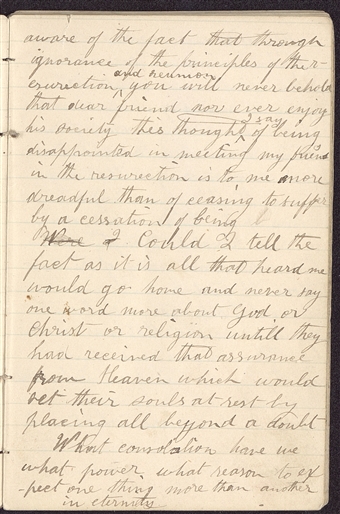 aware of the fact that through
ignorance of the principles of the r-
esurection, and reunion you will never behold
that dear friend nor ever enjoy
his society this thought I say of being
disappointed in meeting my friend
in the resurection is to me more
dreadful than of ceasing to suffer
by a cessation of being
Were I Could I tell the
fact as it is all that heard me
would go home and never say
one word more about God or
Christ or religion untill they
had received that assurance
from Heaven which would
set their souls at rest by
placing all beyond a doubt
What consolation have we
what power what reason to ex
-pect one thing more than another
in eternity